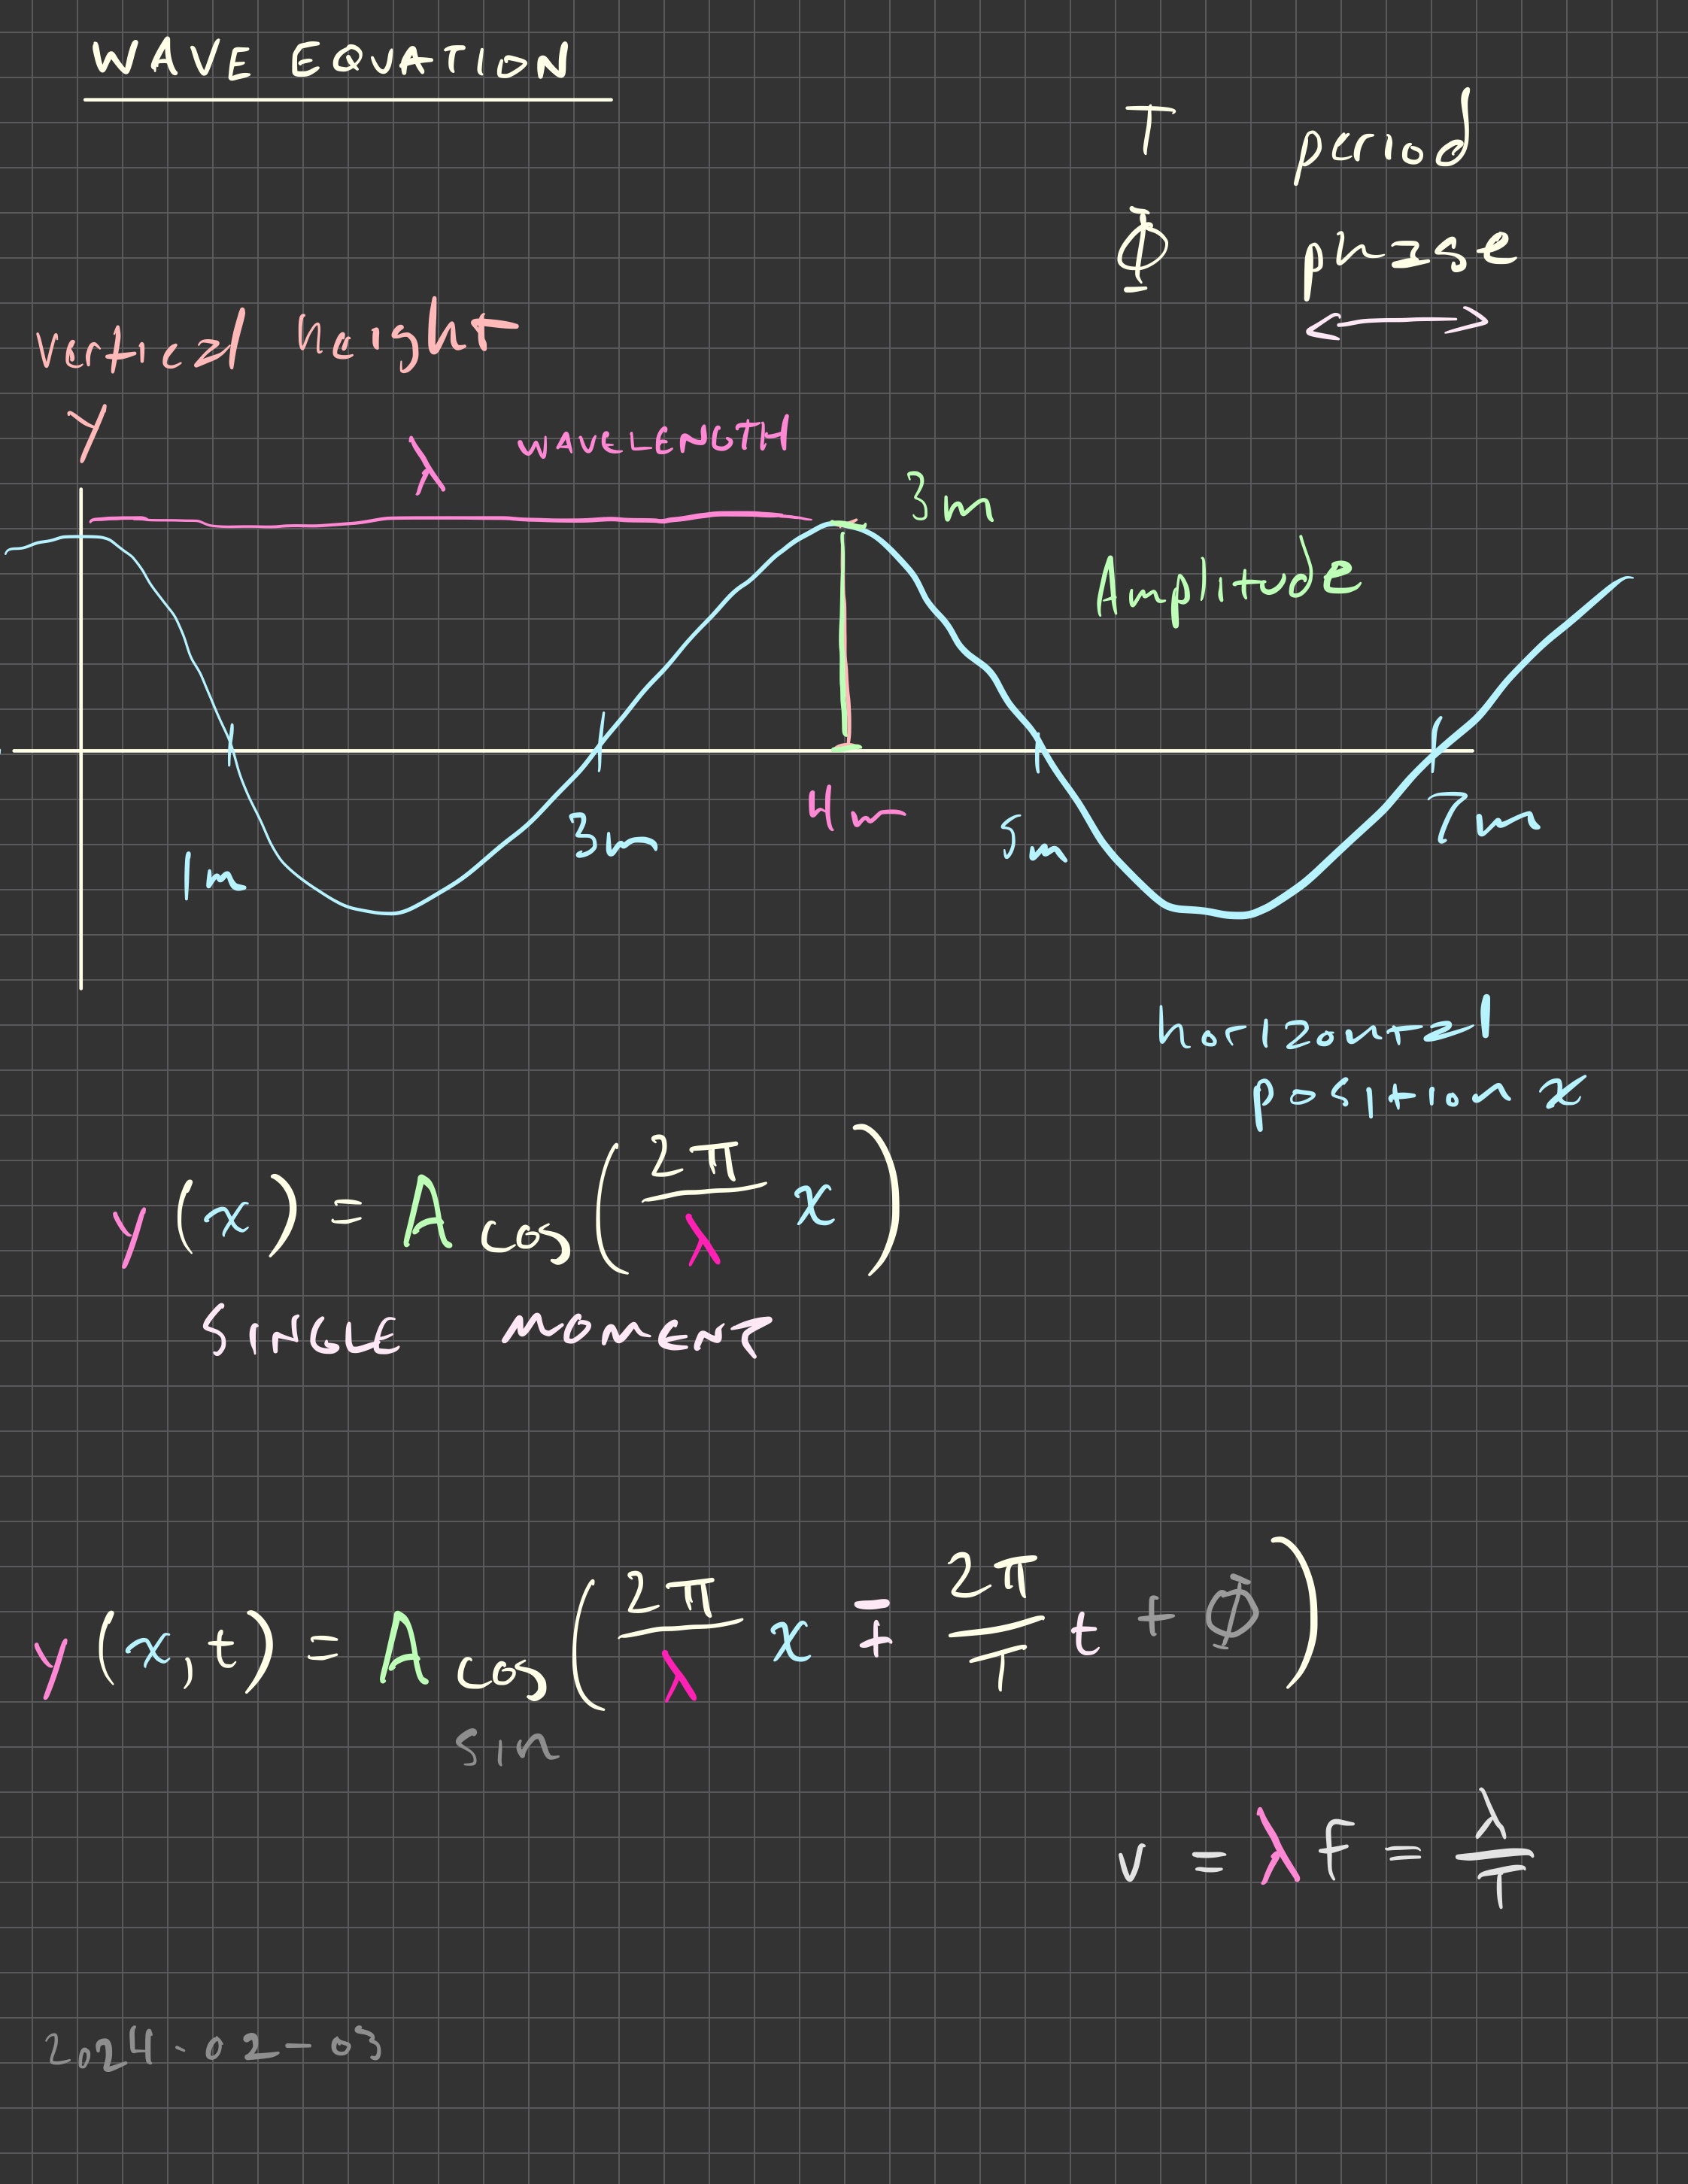 WAVE EQUATION
T period
Φ phase
vertical height
y
λ WAVELENGTH
3m
Amplitude
1m 3m 4m 5m 7m
horizontal
position x
y(x) = A cos(2π/λ x)
SINGLE MOMENT
y(x,t) = A cos(2π/λ x ∓ 2π/T t + Φ)
sin
v = λf = λ/T
2024-02-03